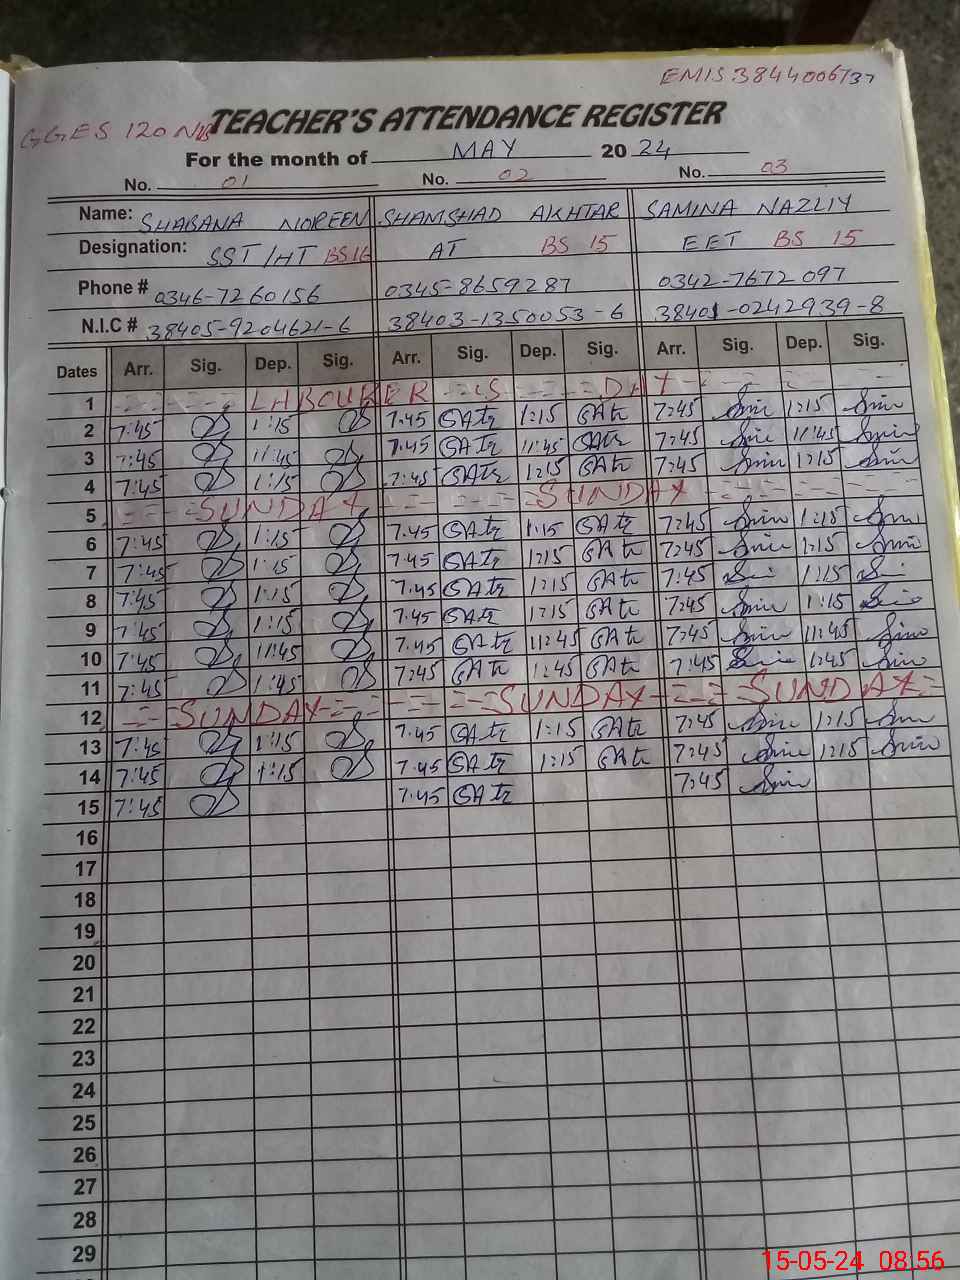 EMIS 38440061 37
GGES 120 NB TEACHER'S ATTENDANCE REGISTER
For the month of MAY 20 24
No. 01 No. 02 No. 03
Name: SHABANA NOREEN SHAMSHAD AKHTAR SAMINA NAZLIY
Designation: SST/HT BS16 AT BS 15 EET BS 15
Phone # 0346-7260156 0345-8659287 0342-7672097
N.I.C # 38405-9204621-6 38403-1350053-6 38401-0242939-8
Dates Arr. Sig. Dep. Sig. Arr. Sig. Dep. Sig. Arr. Sig. Dep. Sig.
1 LABOUBER'S DAY
2 7:45 1:15 7:45 1:15 7:45 1:15
3 7:45 11:45 7:45 11:45 7:45 11:45
4 7:45 1:15 7:45 1:15 7:45 1:15
5 SUNDAY SUNDAY
6 7:45 1:15 7:45 1:15 7:45 1:15
7 7:45 1:15 7:45 1:15 7:45 1:15
8 7:45 1:15 7:45 1:15 7:45 1:15
9 7:45 1:15 7:45 1:15 7:45 1:15
10 7:45 11:45 7:45 11:45 7:45 11:45
11 7:45 1:45 7:45 1:45 7:45 1:45
12 SUNDAY SUNDAY SUNDAY
13 7:45 1:15 7:45 1:15 7:45 1:15
14 7:45 1:15 7:45 1:15 7:45 1:15
15 7:45 7:45 7:45
16
17
18
19
20
21
22
23
24
25
26
27
28
29
15-05-24 08:56